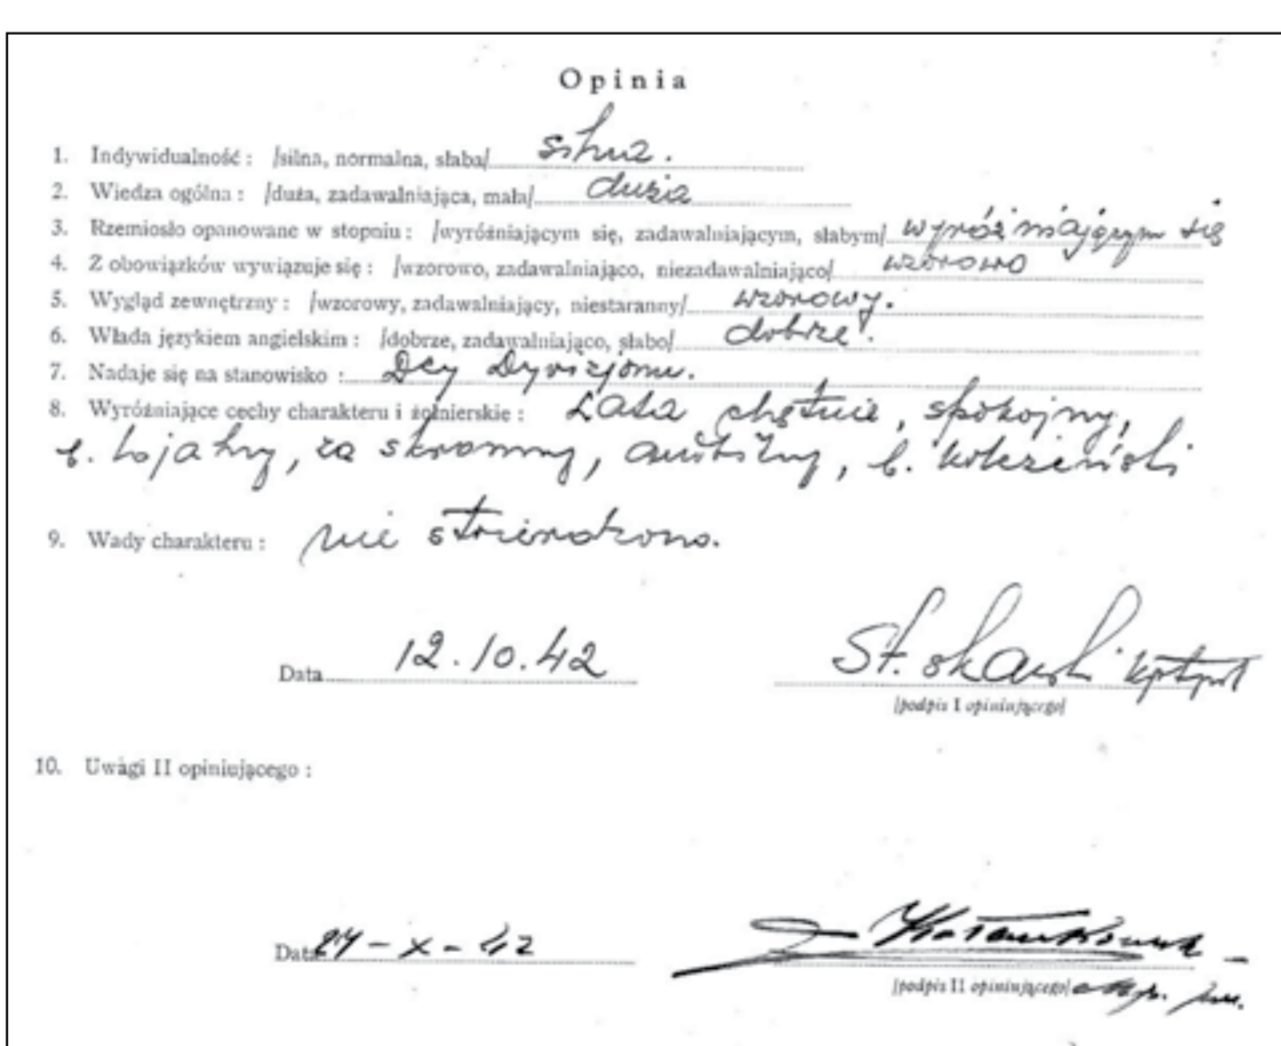 Opinia
1. Indywidualność : /silna, normalna, słaba/ silna.
2. Wiedza ogólna : /duża, zadawalniająca, mała/ duża
3. Rzemiosło opanowane w stopniu : /wyróżniającym się, zadawalniającym, słabym/ wyróżniającym się
4. Z obowiązków wywiązuje się : /wzorowo, zadawalniająco, niezadawalniająco/ wzorowo
5. Wygląd zewnętrzny : /wzorowy, zadawalniający, niestaranny/ wzorowy.
6. Włada językiem angielskim : /dobrze, zadawalniająco, słabo/ dobrze.
7. Nadaje się na stanowisko : Dcy Dywizjonu.
8. Wyróżniające cechy charakteru i żołnierskie : Lata chętnie, spokojny,
b. lojalny, za skromny, ambitny, b. koleżeński
9. Wady charakteru : nie stwierdzono.
Data 12.10.42 St. Skarski kpt. pil.
/podpis I opiniującego/
10. Uwagi II opiniującego :
Data 24-X-42
/podpis II opiniującego/